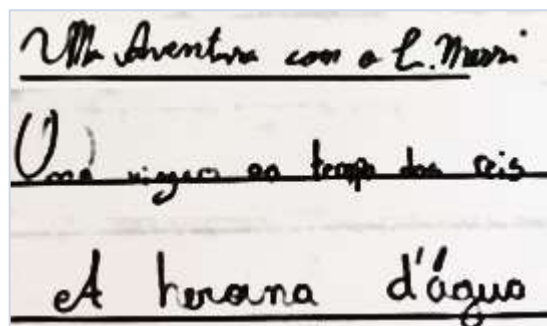 Uma Aventura com o L. Messi
Uma viagem ao tempo dos reis
A heroína d'água